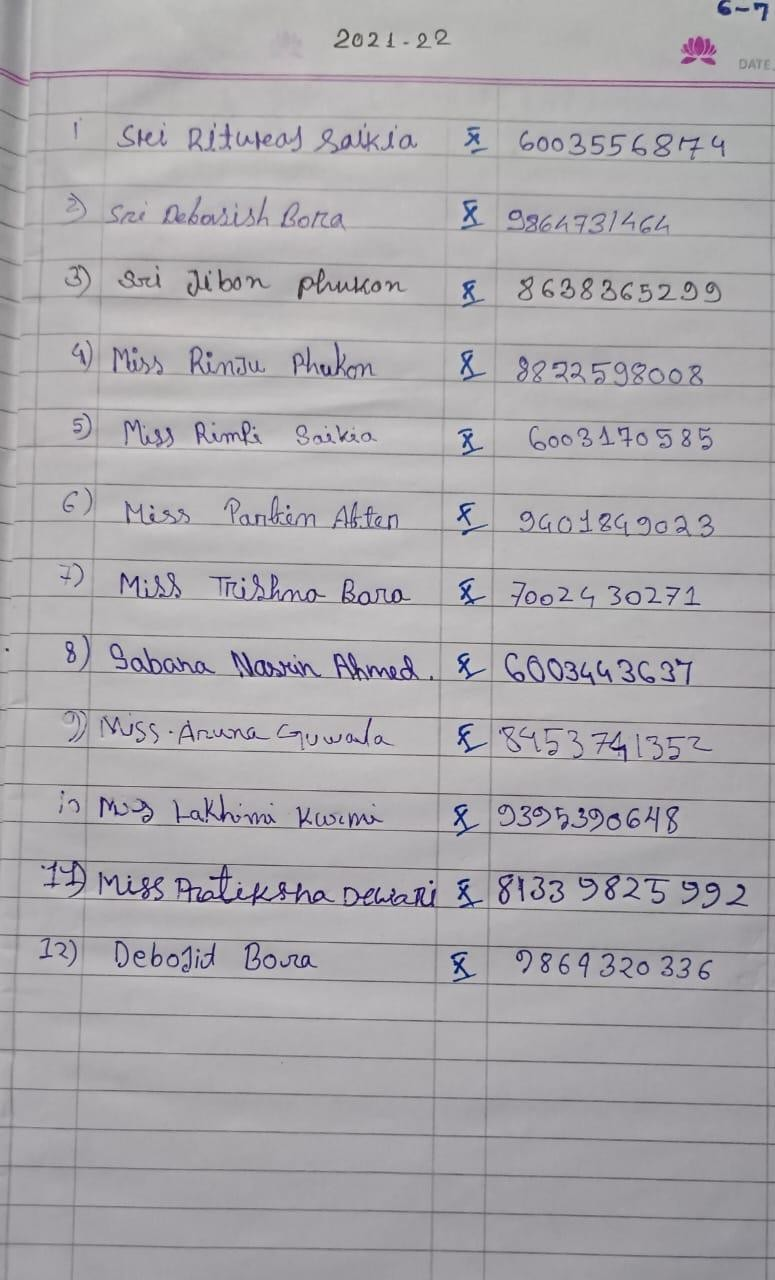 6-7
2021-22
DATE
1 Sri Rituraj Saikia X 6003556874
2) Sri Debasish Bora X 9864731464
3) Sri Jibon Phukon X 8638365299
4) Miss Rinju Phukon X 8822598008
5) Miss Rimpi Saikia X 6003170585
6) Miss X 9401849023
7) Miss Trishna Bora X 7002430271
8) Sabana Nasrin Ahmed. X 6003443637
9) Miss. Aruna Guwala X 8453741352
10 Miss Lakhimi Kurmi X 9395390648
11) Miss Pratiksha Dewari X 81339825992
12) Debojid Bora X 9864320336